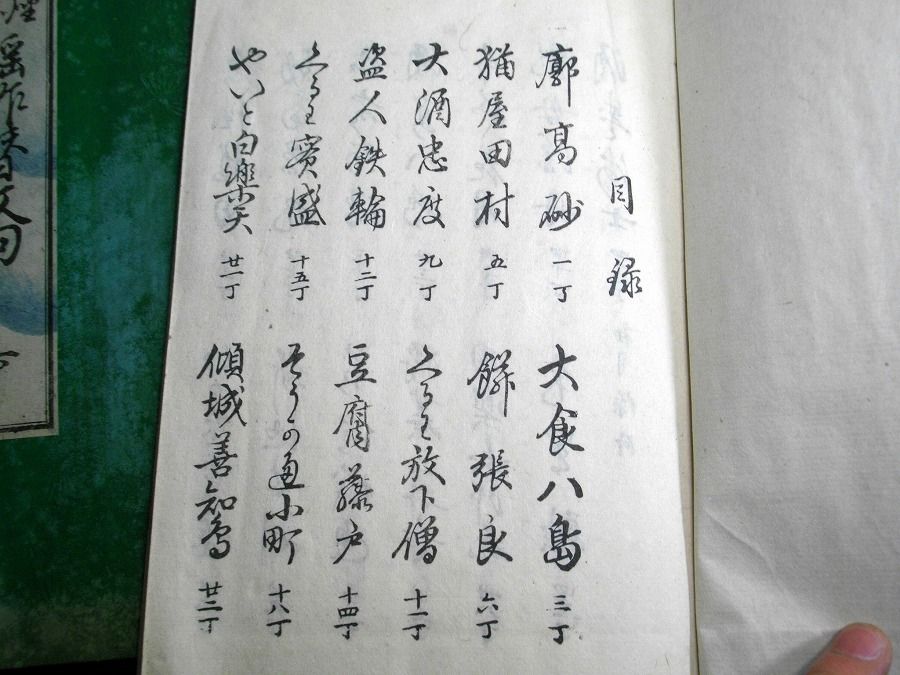 目録
廓高砂 一丁
大食八島 三丁
猫屋田村 五丁
餅張良 六丁
大酒忠度 九丁
くるわ放下僧 十一丁
盗人鉄輪 十二丁
豆腐藤戸 十四丁
くるわ實盛 十五丁
そうか通小町 十八丁
やいと白樂天 廿一丁
傾城善知鳥 廿二丁
謡作替文句